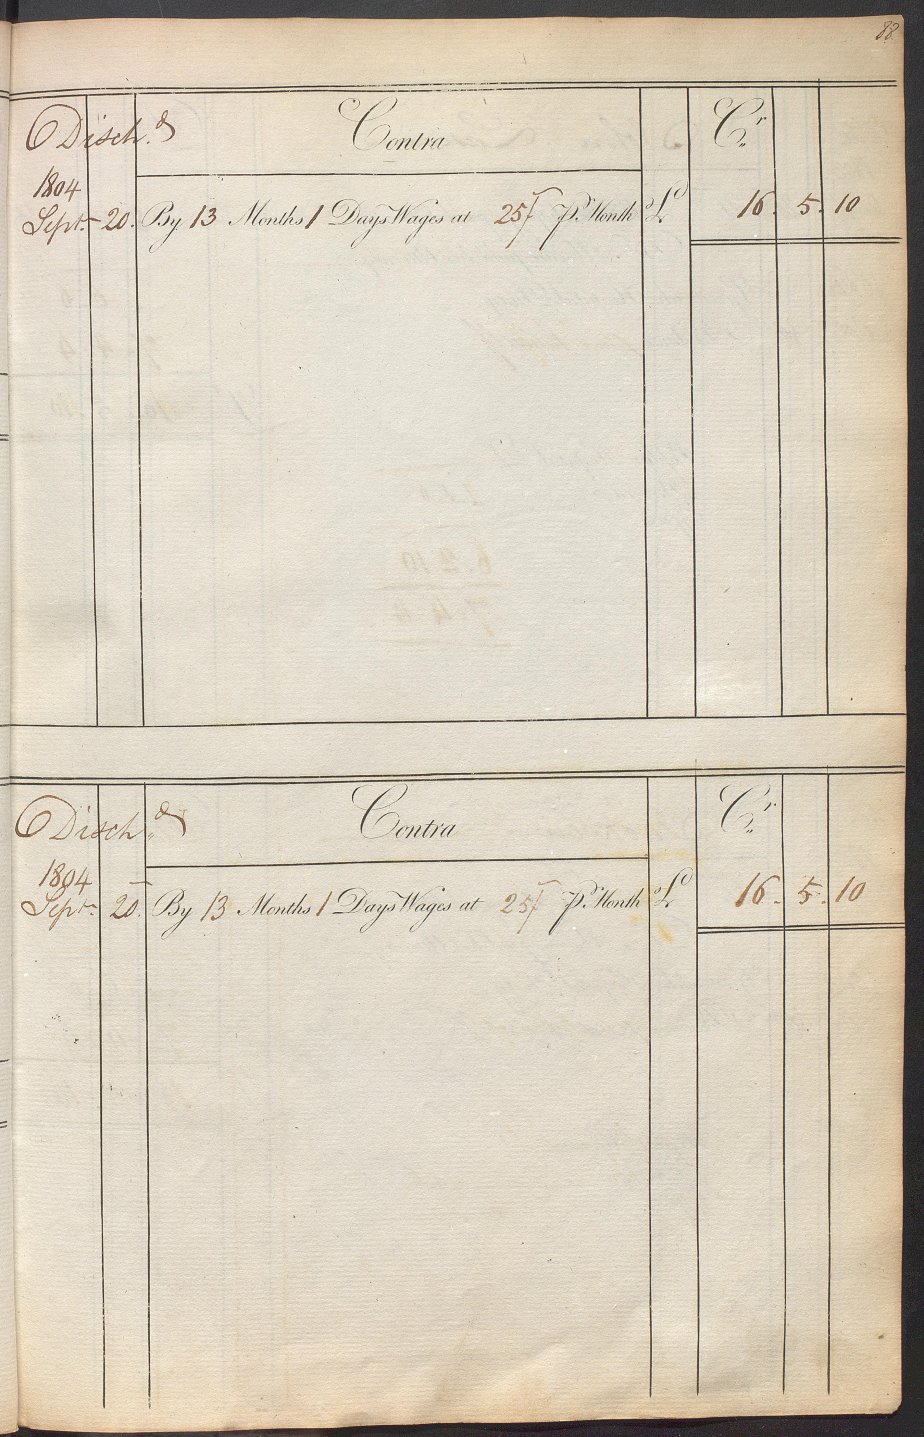 88
Disch.d Contra Cr
1804
Sept. 20. By 13 Months 1 Days Wages at 25/ pr. Month £ 16. 5. 10
Disch.d Contra Cr
1804
Sept. 20. By 13 Months 1 Days Wages at 25/ pr. Month £ 16. 5. 10